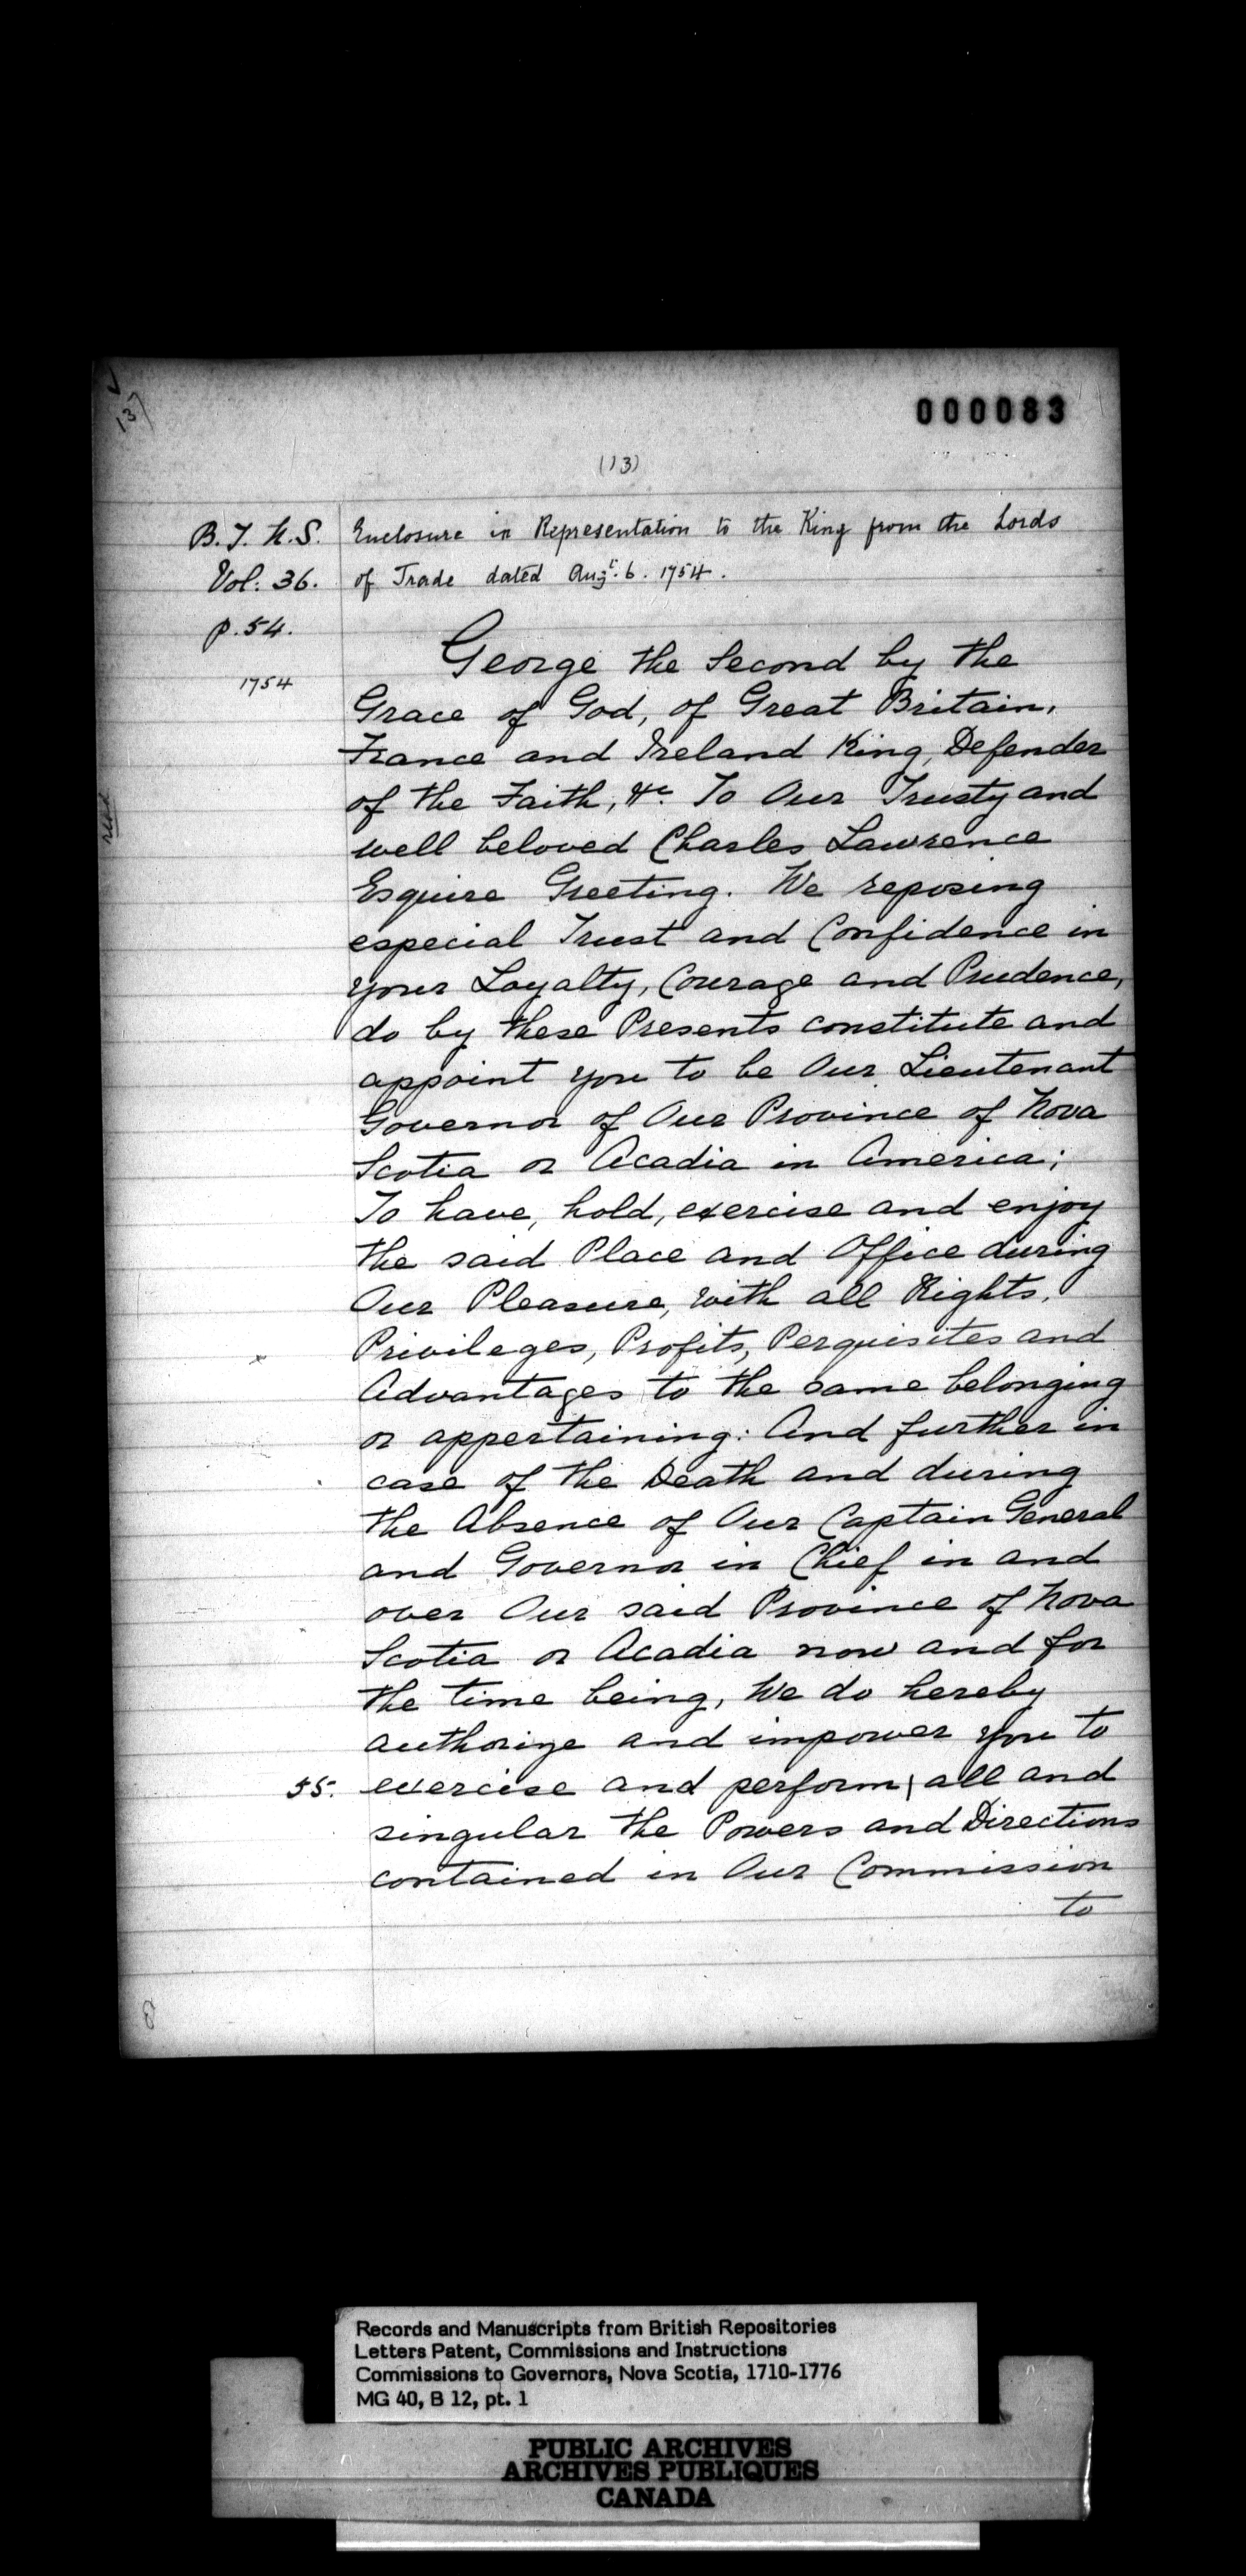 137
000083
(13)
B.T.N.S.
Vol: 36.
p. 54.
1754
Enclosure in Representation to the King from the Lords
of Trade dated Augt. 6. 1754.
George the Second by the
Grace of God, of Great Britain,
France and Ireland King, Defender
of the Faith, &c. To Our Trusty and
well beloved Charles Lawrence
Esquire Greeting. We reposing
especial Trust and Confidence in
your Loyalty, Courage and Prudence,
do by these Presents constitute and
appoint you to be Our Lieutenant
Governor of Our Province of Nova
Scotia or Acadia in America;
To have, hold, exercise and enjoy
the said Place and Office during
Our Pleasure, with all Rights,
Privileges, Profits, Perquisites and
Advantages to the same belonging
or appertaining: And further in
case of the Death and during
the Absence of Our Captain General
and Governor in Chief in and
over Our said Province of Nova
Scotia or Acadia now and for
the time being, We do hereby
authorize and impower you to
55. exercise and perform | all and
singular the Powers and Directions
contained in Our Commission
to
Records and Manuscripts from British Repositories
Letters Patent, Commissions and Instructions
Commissions to Governors, Nova Scotia, 1710-1776
MG 40, B 12, pt. 1
PUBLIC ARCHIVES
ARCHIVES PUBLIQUES
CANADA